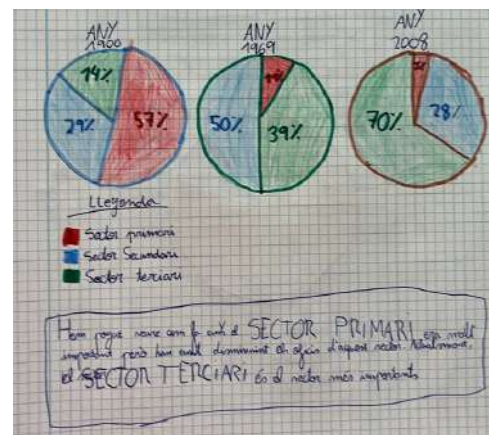 ANY ANY ANY
1900 1969 2008
14% 29% 57%
50% 39%
70% 28%
Llegenda
Sector primari
Sector Secundari
Sector terciari
Hem pogut veure com fa anys el SECTOR PRIMARI era molt
important però han anat disminuint els oficis d'aquest sector. Actualment,
el SECTOR TERCIARI és el sector més important.